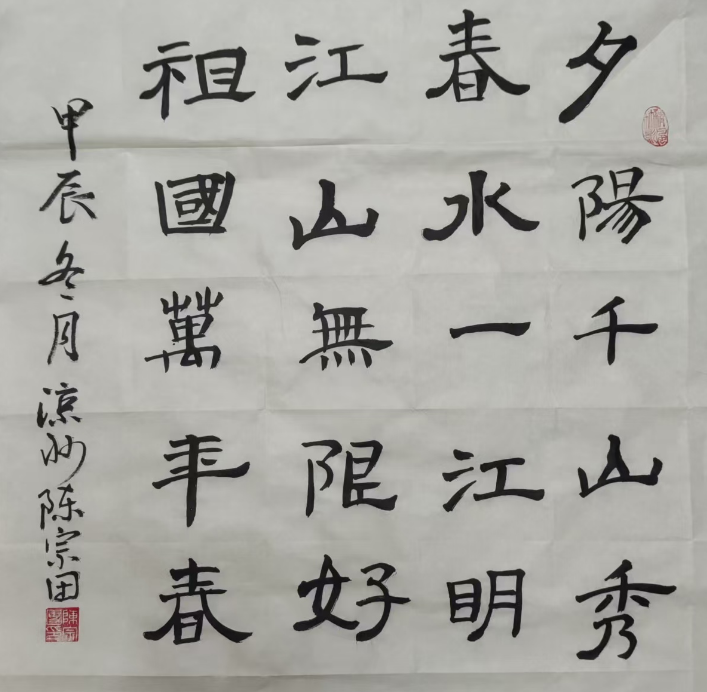 夕陽千山秀
春水一江明
江山無限好
祖國萬年春
甲辰冬月涼州陈宗田